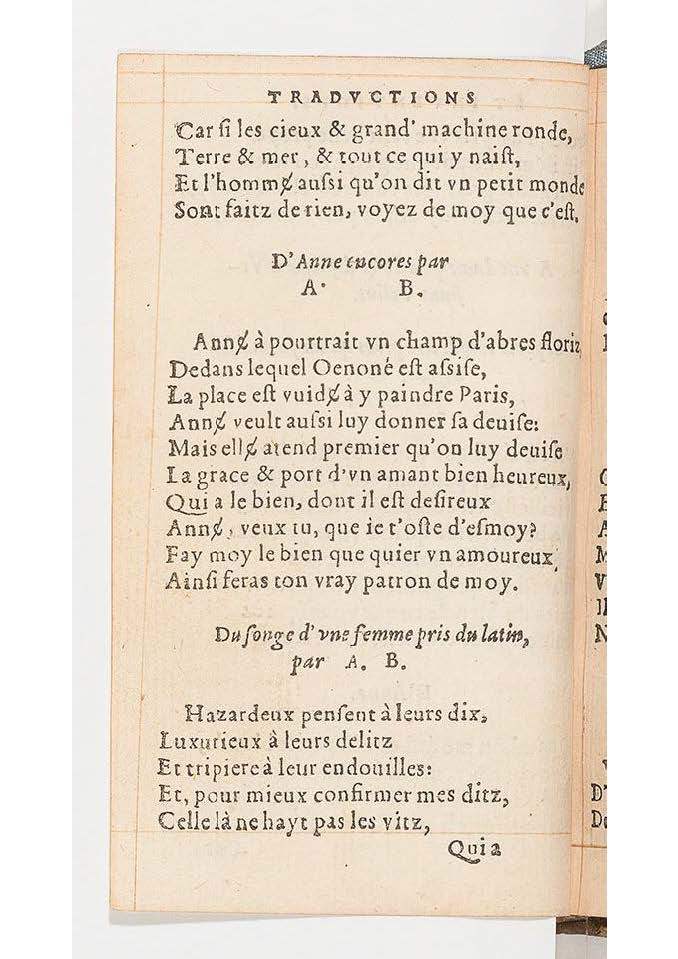 TRADVCTIONS
Car ſi les cieux & grand' machine ronde,
Terre & mer, & tout ce qui y naiſt,
Et l'hommɇ auſsi qu'on dit vn petit monde
Sont faitz de rien, voyez de moy que c'eſt.
D'Anne encores par
A. B.
Annɇ à pourtrait vn champ d'abres floriz
Dedans lequel Oenoné eſt aſsiſe,
La place eſt vuidɇ à y paindre Paris,
Annɇ veult auſsi luy donner ſa deuiſe:
Mais ellɇ atend premier qu'on luy deuiſe
La grace & port d'vn amant bien heureux,
Qui a le bien, dont il eſt deſireux
Annɇ, veux tu, que ie t'oſte d'eſmoy?
Fay moy le bien que quier vn amoureux,
Ainſi feras ton vray patron de moy.
Du ſonge d'vne femme pris du latin,
par A. B.
Hazardeux penſent à leurs dix,
Luxurieux à leurs delitz
Et tripiere à leur endouilles:
Et, pour mieux confirmer mes ditz,
Celle là ne hayt pas les vitz,
Qui a